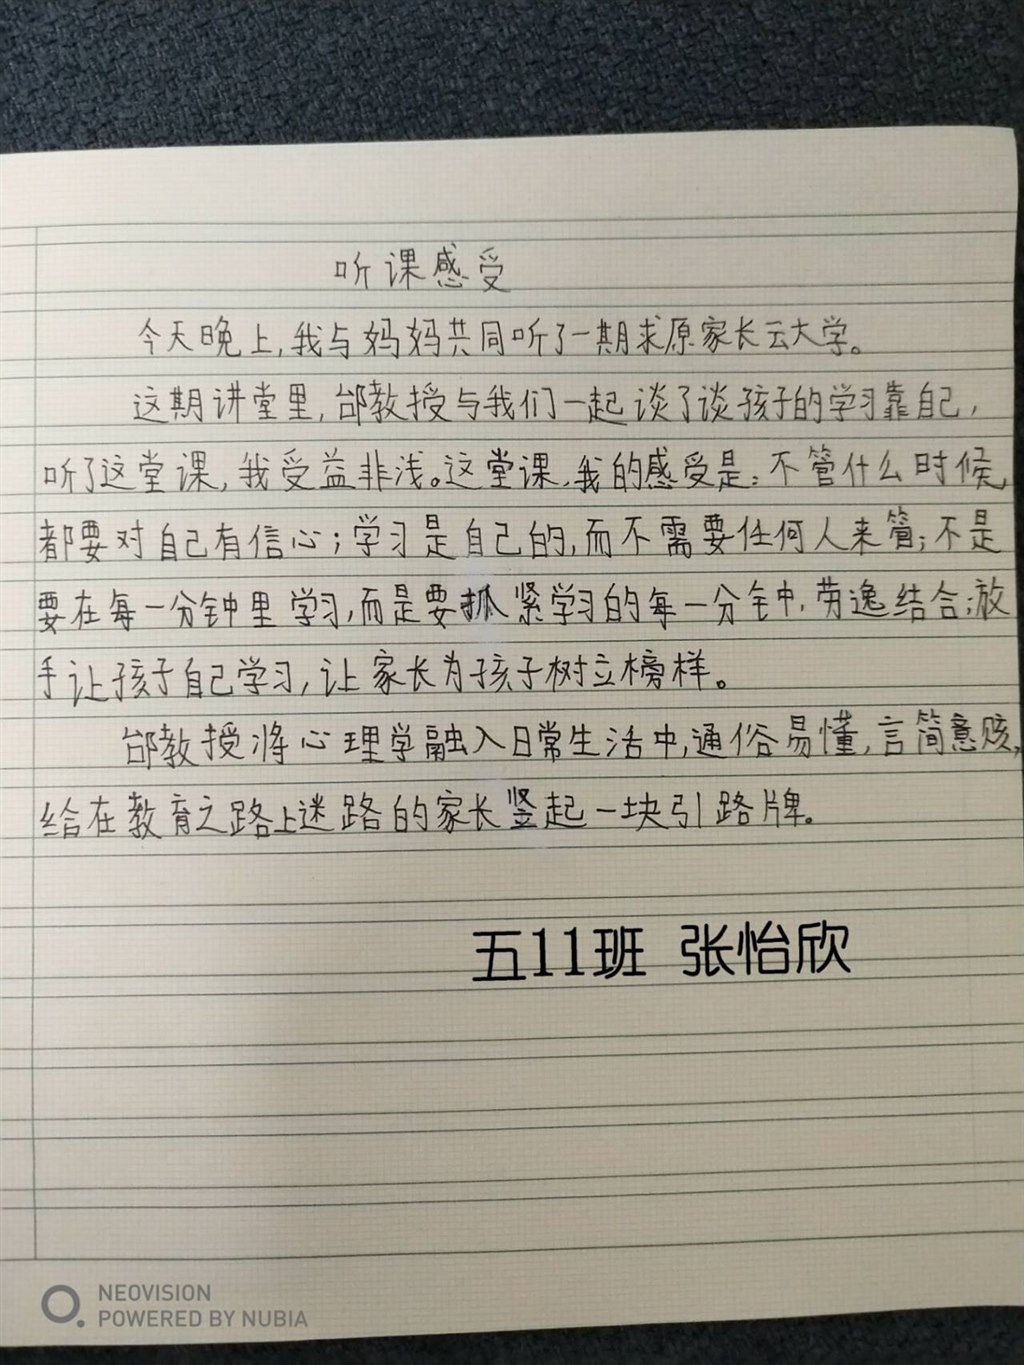 听课感受
今天晚上,我与妈妈共同听了一期求原家长云大学。
这期讲堂里,邰教授与我们一起谈了谈孩子的学习靠自己,
听了这堂课,我受益非浅。这堂课,我的感受是:不管什么时候,
都要对自己有信心;学习是自己的,而不需要任何人来管;不是
要在每一分钟里学习,而是要抓紧学习的每一分钟,劳逸结合;放
手让孩子自己学习,让家长为孩子树立榜样。
邰教授将心理学融入日常生活中,通俗易懂,言简意赅,
给在教育之路上迷路的家长竖起一块引路牌。
五11班 张怡欣
NEOVISION
POWERED BY NUBIA